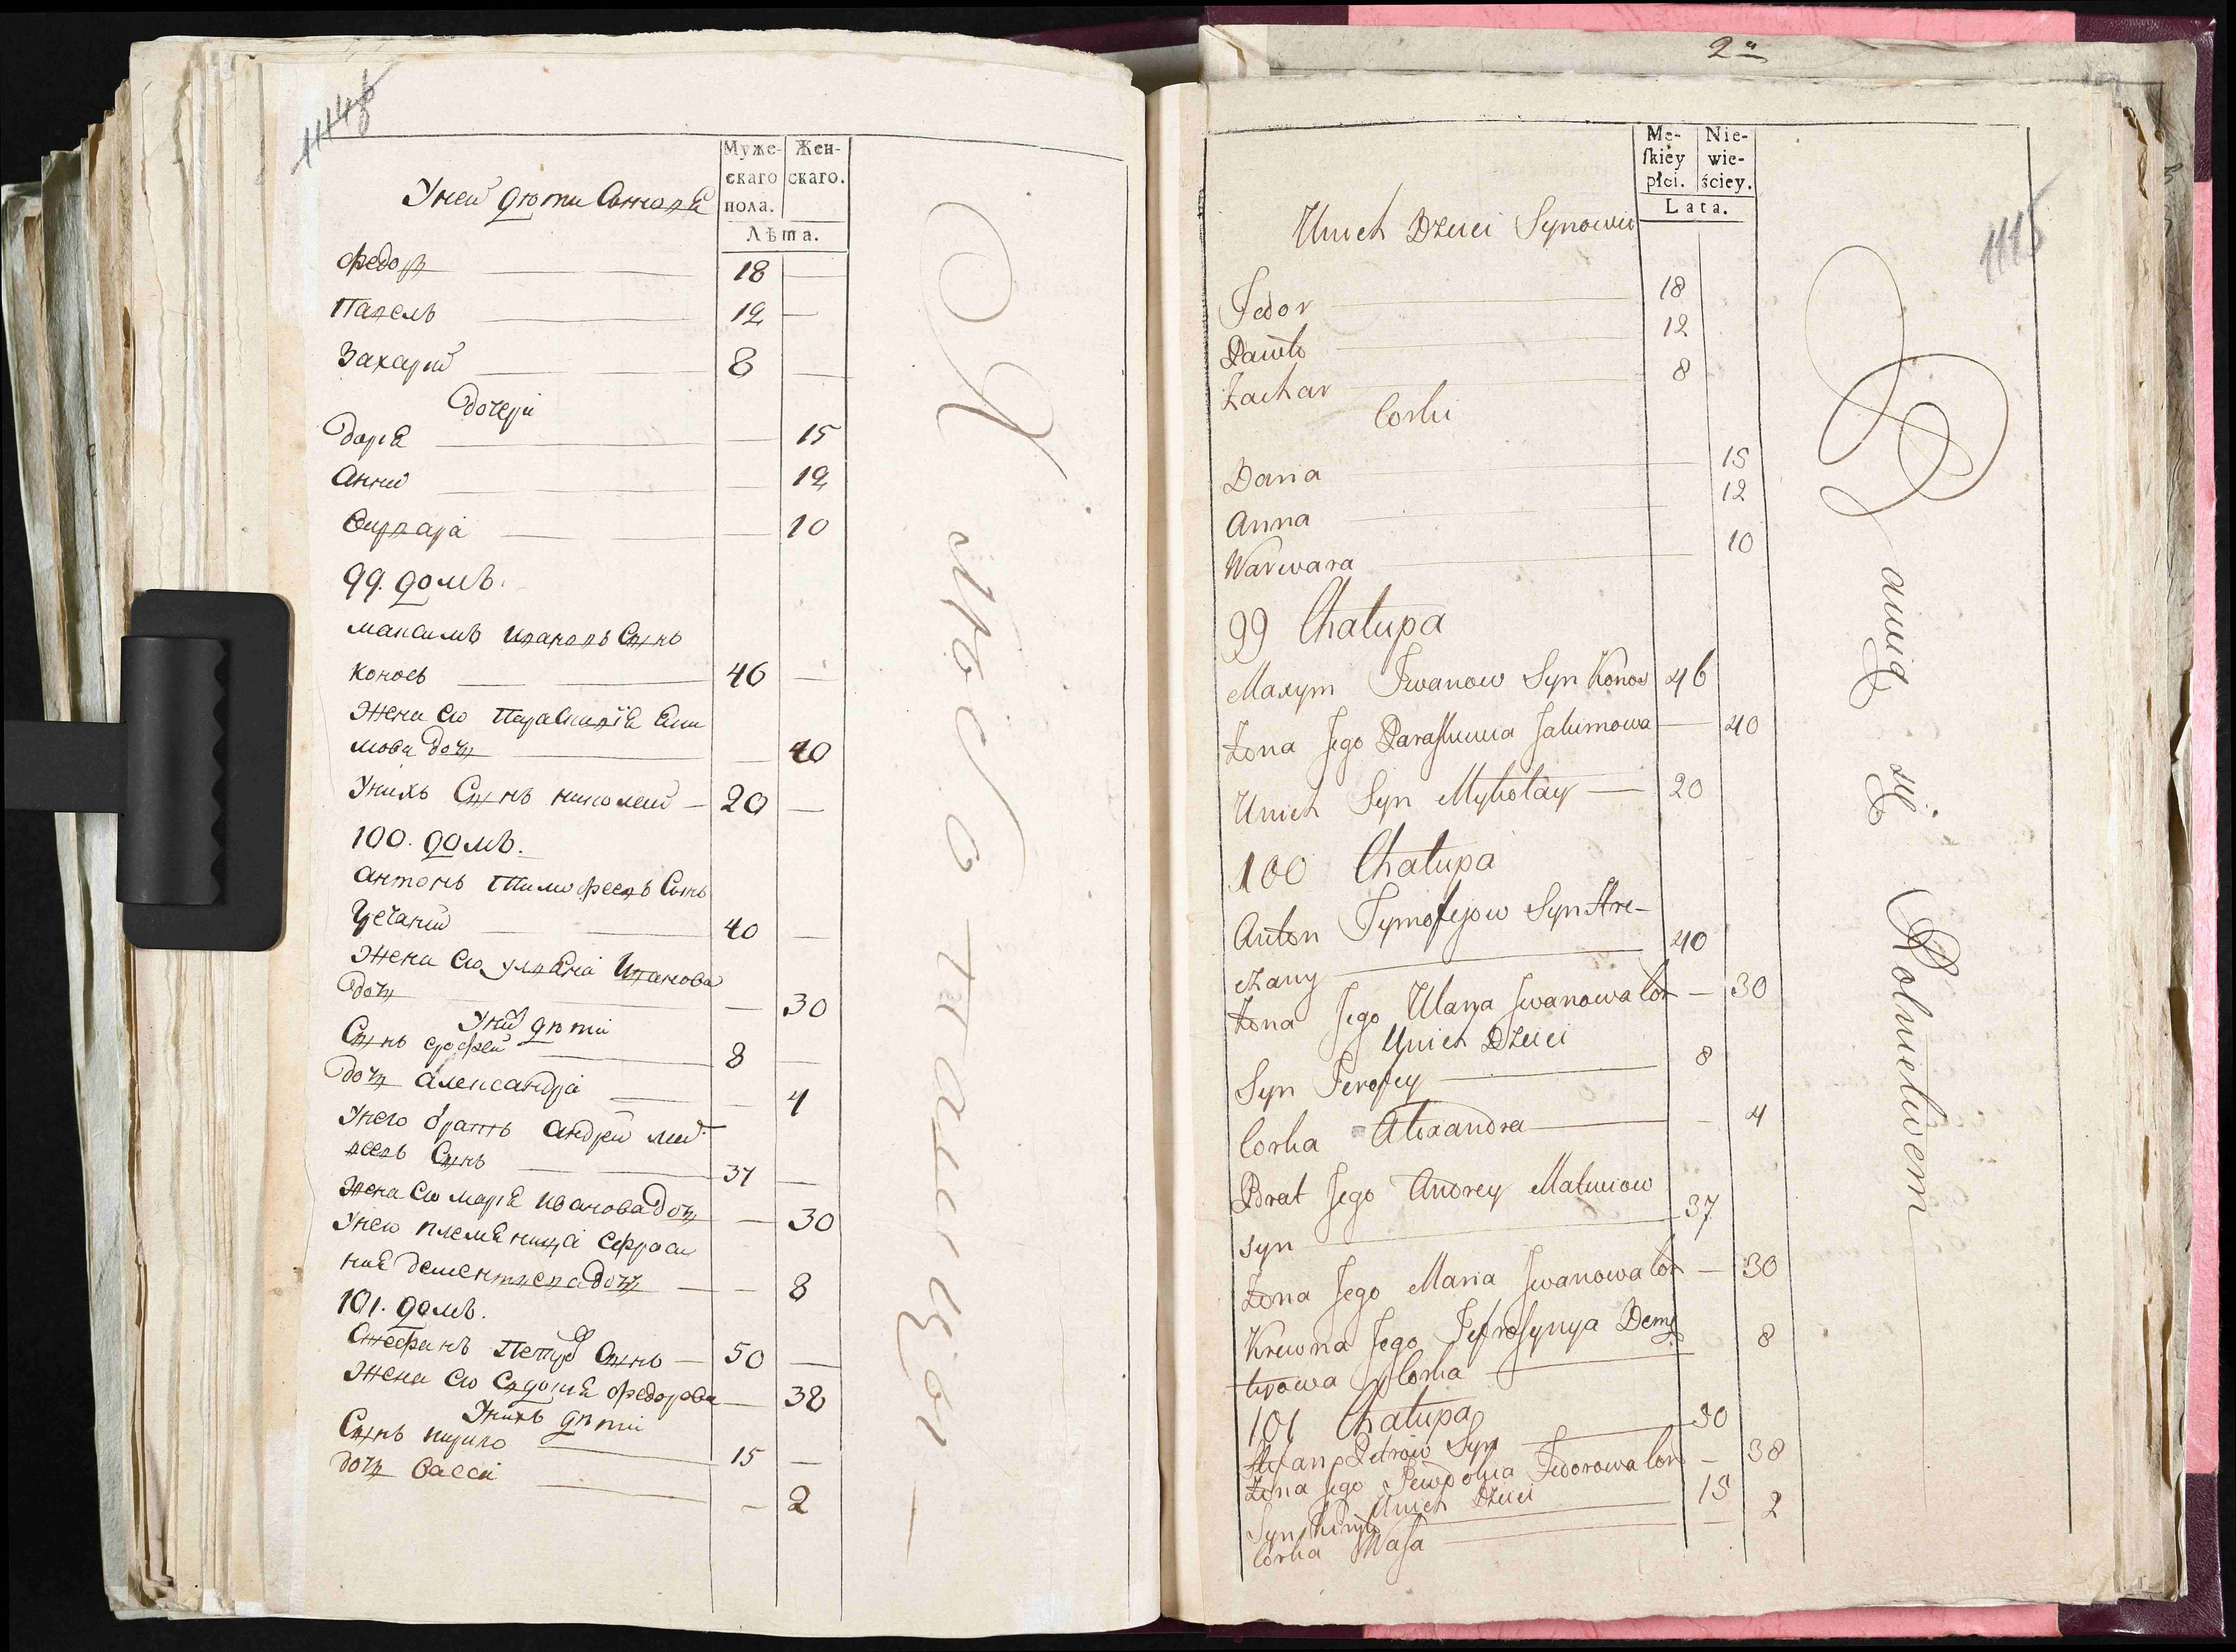 Муже-
скаго
пола.
Жен-
скаго.
Лѣта.
Унеи дѣти Синовя
Федоръ 18
Павелъ 12
Захарий 8
Дочери
Дария 15
Анна 12
10
99. домъ.
Максимъ Ивановъ Сынъ
Коновъ 46
Жена его Параскивія Еки
мова дочъ 40
Унихъ Сынъ николаий 20
100. домъ.
Антонъ Тимофеевъ Сынъ
Гречаний 40
Жена его улияна Иванова
дочъ 30
Уних дѣти
Сынъ ерофей 8
дочъ Александра 4
Унего братъ Андреи Мат
веевъ Сынъ 37
Жена его мария Ивановадочъ 30
Унего племяница Ефроси
ния дементиевадочъ 8
101. домъ.
Стефанъ Петровъ Сынъ 50
Жена его Евдокия Федорова 38
Унихъ дѣти
Сынъ кирило 15
дочъ Васса 2
Мѣсточани
2
1115
Mę-
ſkiéy
płci.
Nie-
wie-
ściey.
Lata.
Unich Dzieci Synowie
Fedor 18
Pawło 12
Zachar 8
Corki
Daria 15
Anna 12
Warwara 10
99 Chałupa
Maxym Iwanow Syn Konow 46
Żona Jego Paraskiewia Jakimowa 40
Unich Syn Mykołay 20
100 Chałupa
Anton Tymofejow Syn Hre-
czany 40
Żona Jego Ulana Iwanowa Cor 30
Unich Dzieci
Syn Jerofey 8
Corka Alexandra 4
Brat Jego Andrey Matwiow
Syn 37
Żona Jego Maria Iwanowa Cor 30
Krewna Jego Jefrosynya Demę
tiowa Corka 8
101 Chałupa
Stefan Petrow Syn 50
Żona Jego Jewdokia Fedorowa Cor 38
Unich Dzieci
Syn Kiryło 15
Corka Wasa 2
Bawią się Rolnictwem